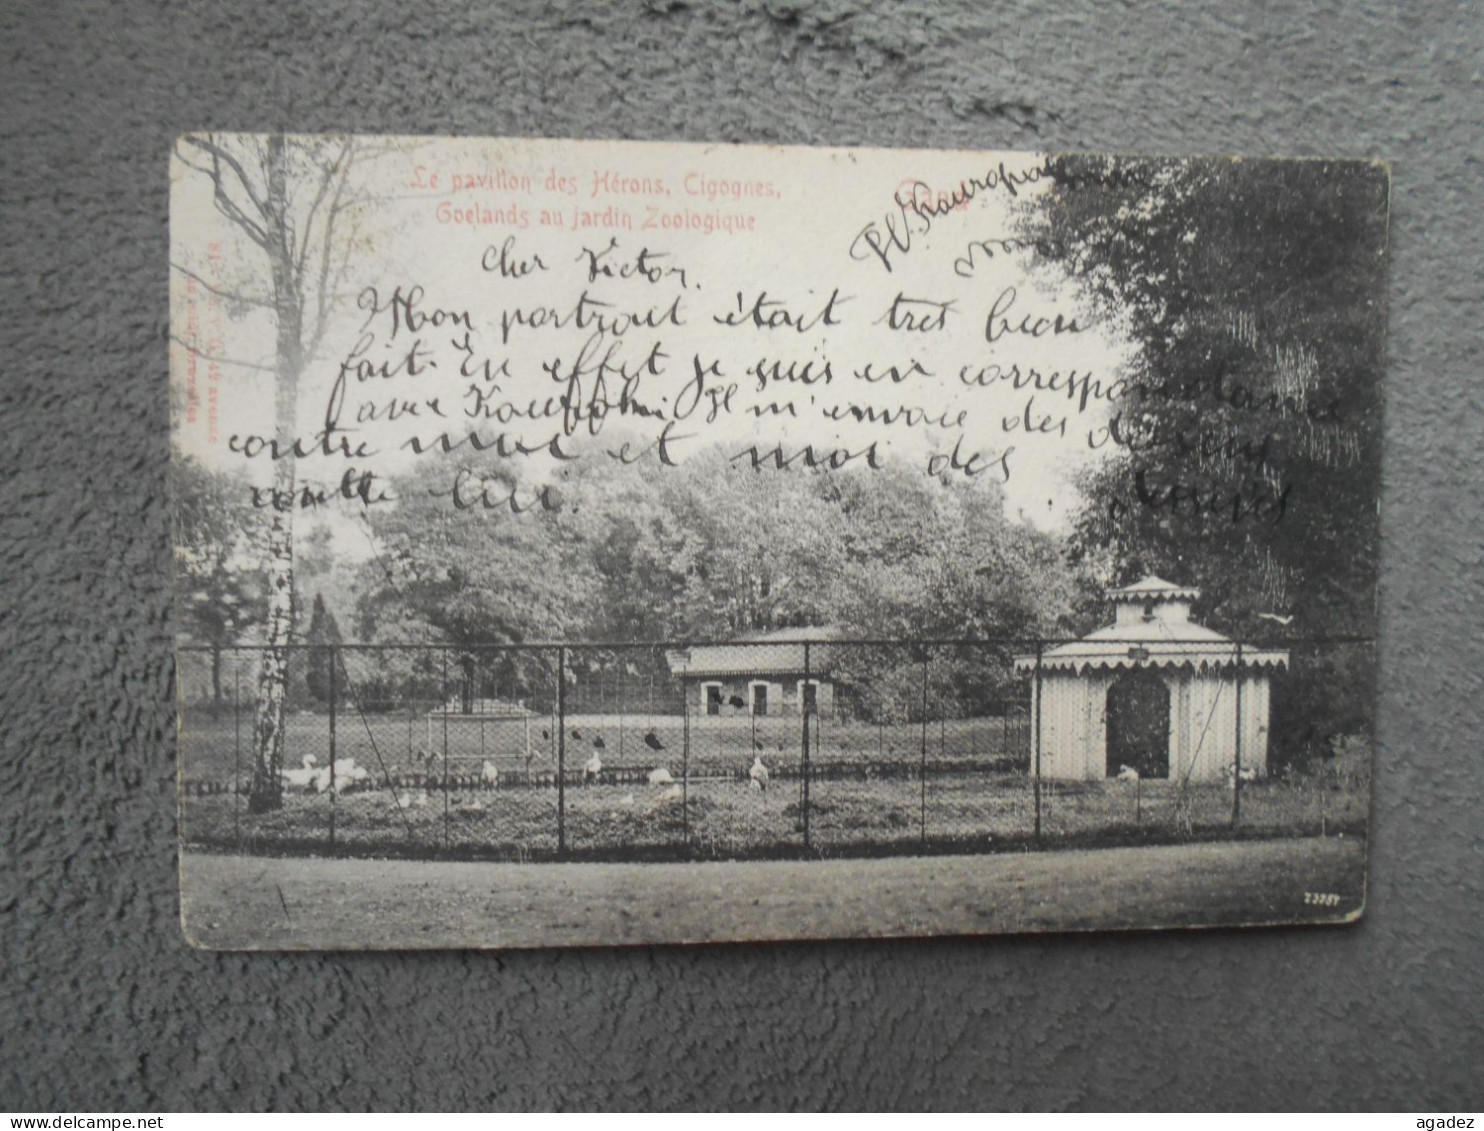 Le pavillon des Hérons, Cigognes,
Goelands au jardin Zoologique
Gand
cher Victor.
Mon portrait était tres bien
fait. En effet je suis en correspondance
avec Kouropatki Il m'envoie des dessins
contre moi et moi des
contre lui.
23251
agadez
delcampe.net